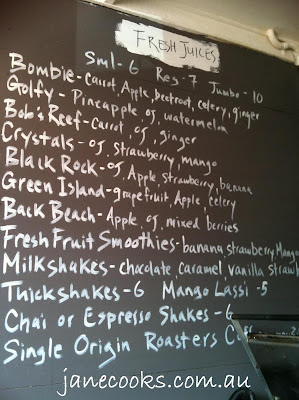 FRESH JUICES
Sml-6 Reg-7 Jumbo-10
Bombie-Carrot, Apple, beetroot, celery, ginger
Golfy-Pineapple, OJ, watermelon
Bob's Reef-Carrot, OJ, ginger
Crystals-OJ, strawberry, mango
Black Rock-OJ, Apple, strawberry, banana
Green Island-grapefruit, Apple, celery
Back Beach-Apple, OJ, mixed berries
Fresh Fruit Smoothies-banana strawberry Mango
Milkshakes-chocolate caramel vanilla strawb
Thickshakes-6 Mango Lassi-5
Chai or Espresso Shakes-6
Single Origin Roasters
janecooks.com.au